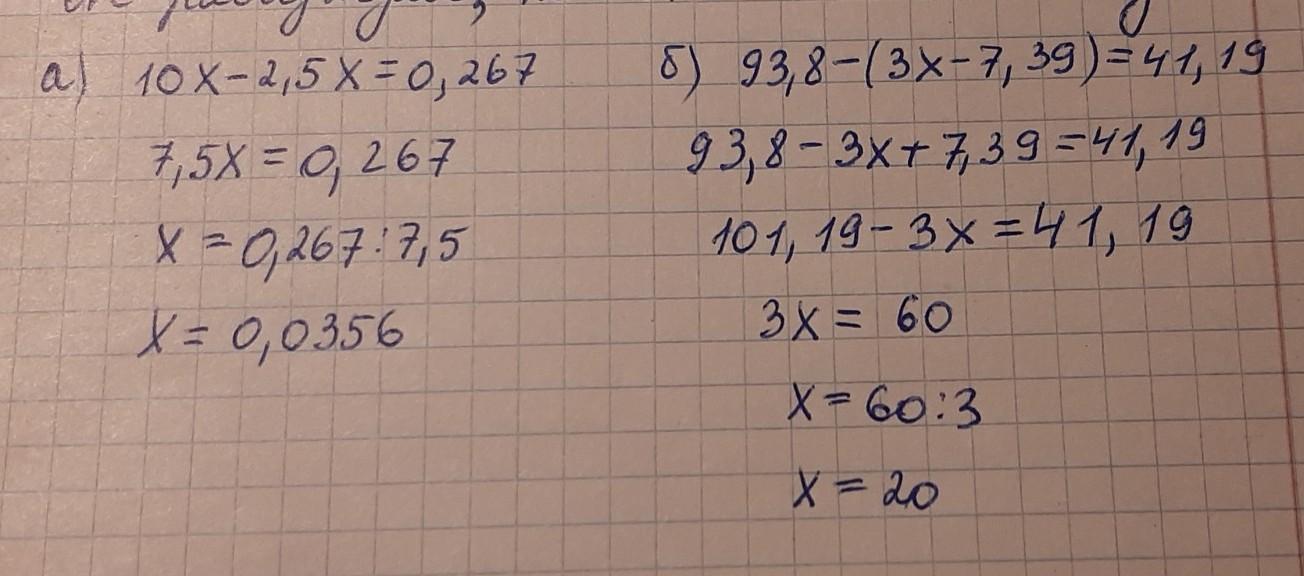 а) 10x-2,5x=0,267
7,5x=0,267
x=0,267:7,5
x=0,0356
б) 93,8-(3x-7,39)=41,19
93,8-3x+7,39=41,19
101,19-3x=41,19
3x=60
x=60:3
x=20